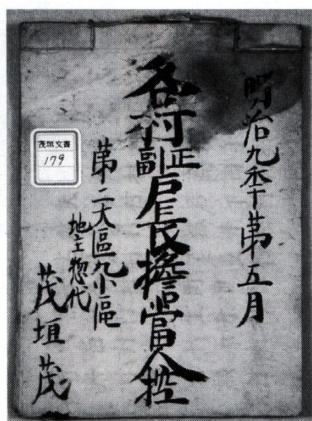 明治九秊第五月
各村正副戸長擔當人控
第二大區九小區
地主惣代
茂垣茂
茂垣文書
179